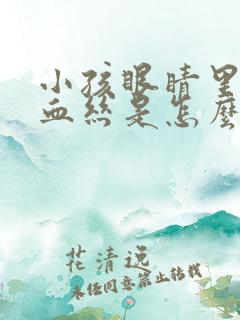 小孩眼睛里
血丝是怎么
花清远
未经同意禁止转载